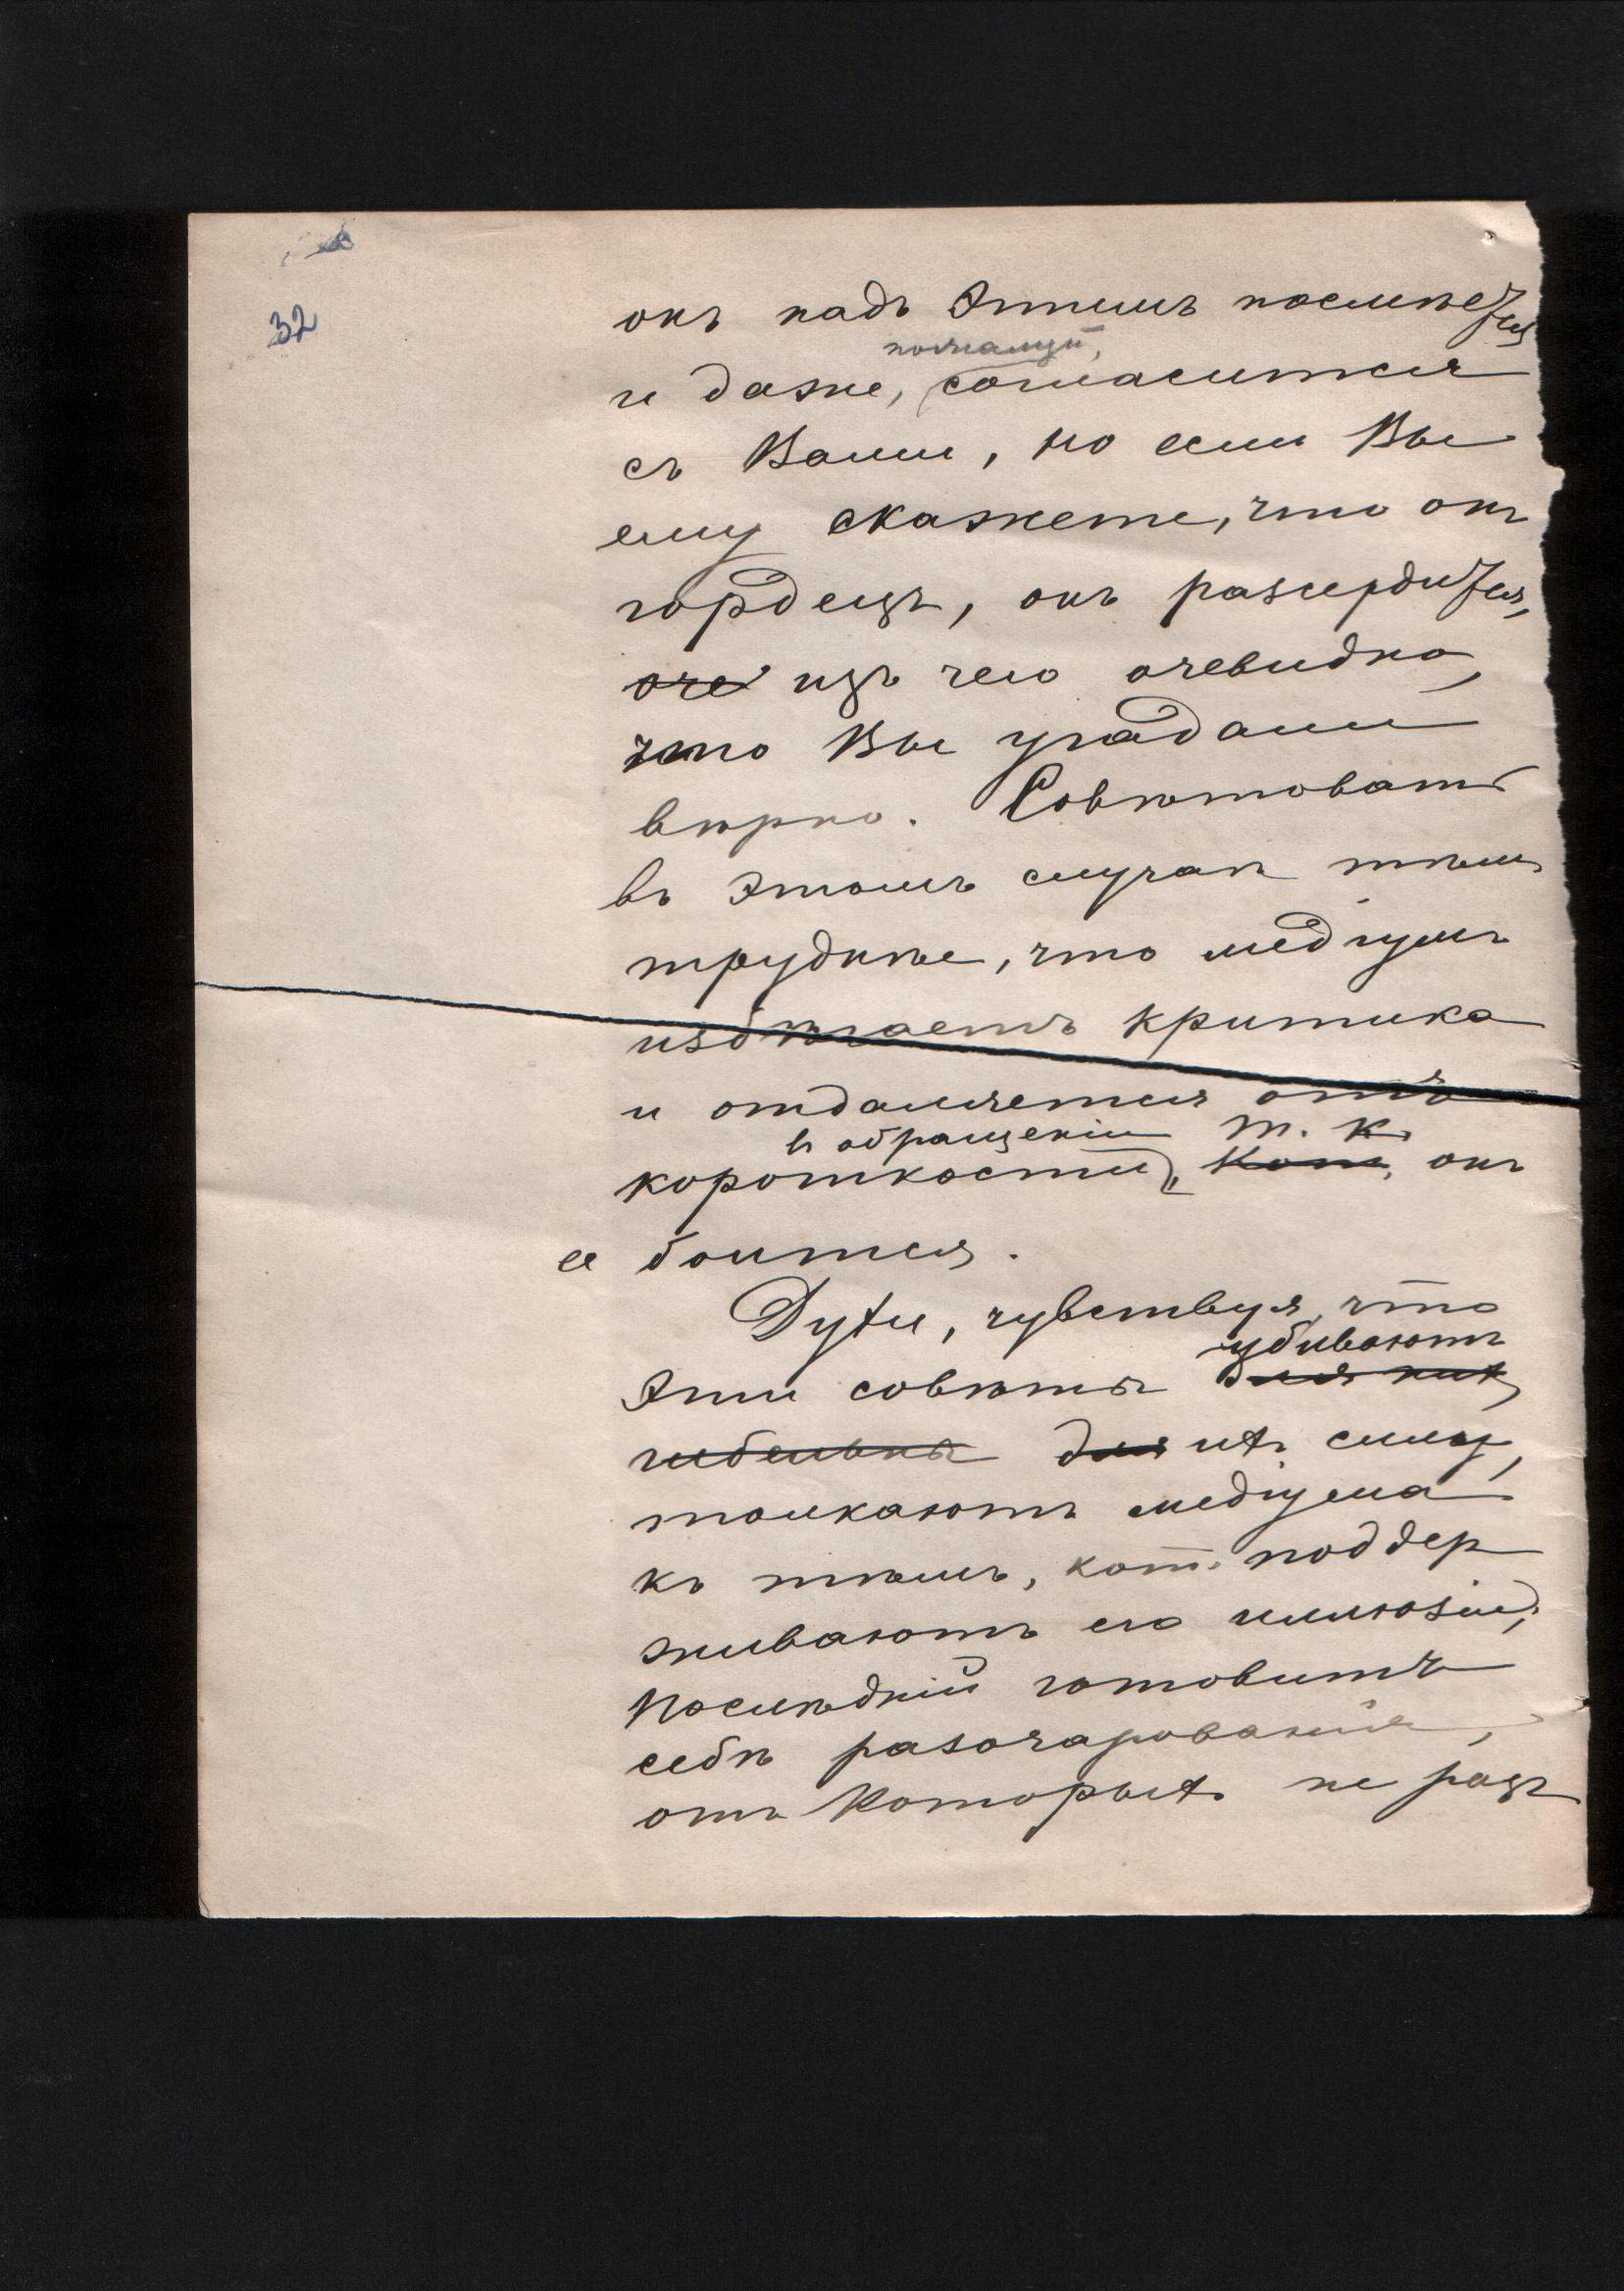 32
онъ надъ этимъ посмѣется
пожалуй,
и даже, согласится
съ Вами, но если Вы
ему скажете, что онъ
гордецъ, онъ разсердится,
оче изъ чего очевидно,
что Вы угадали
вѣрно. Совѣтовать
въ этомъ случаѣ тѣмъ
труднѣе, что медіумъ
избѣгаетъ критика
и отдаляется отъ
в обращеніи т. к.
короткости, Кот. онъ
ее боится.
Духи, чувствуя, что
убиваютъ
Эти совѣты для нихъ
гибельны для ихъ силу,
толкаютъ медіума
къ тѣмъ, кот. поддер
живаютъ его иллюзіи;
Послѣдній готовитъ
себѣ разочарованія,
отъ которыхъ не разъ